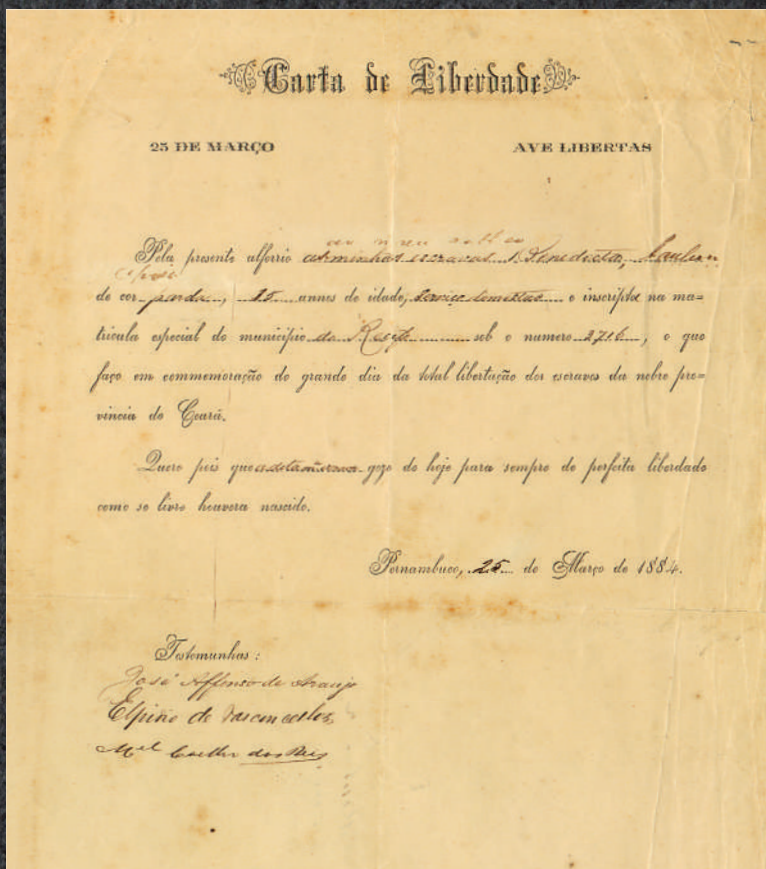 Carta de Liberdade
25 DE MARÇO AVE LIBERTAS
Pela presente alforrio as minhas escravas Benedicta,
de cor parda, annos de idade, serviço domestico e inscripta na ma=
tricula especial do municipio do Recife sob o numero 2716, o que
faço em commemoração do grande dia da total libertação dos escravos da nobre pro=
vincia do Ceará.
Quero pois que goze de hoje para sempre de perfeita liberdade
como se livre houvera nascido.
Pernambuco, 25 de Março de 1884.
Testemunhas:
José Affonso de Araujo
Elpino de Vasconcellos
Mel Coelho dos Reis